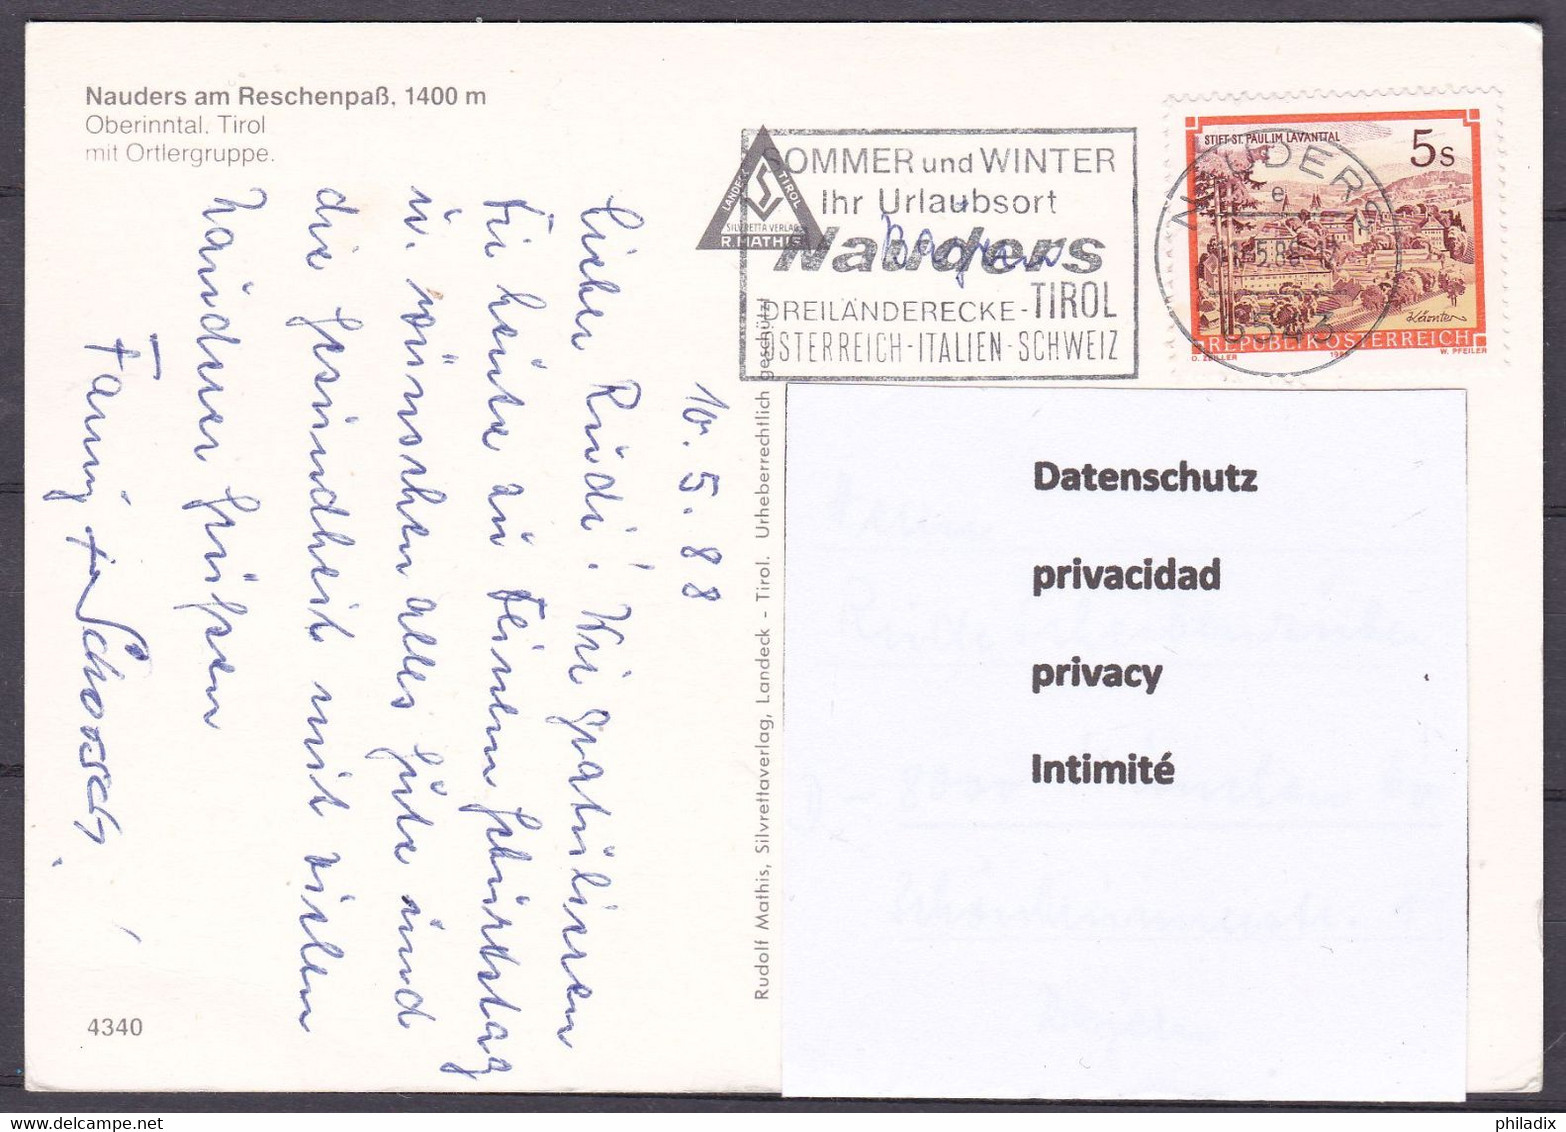 Nauders am Reschenpaß, 1400 m
Oberinntal. Tirol
mit Ortlergruppe.
LANDECK TIROL
SILVRETTA VERLAG
R. MATHIS
SOMMER und WINTER
Ihr Urlaubsort
Nauders
DREILÄNDERECKE-TIROL
ÖSTERREICH-ITALIEN-SCHWEIZ
STIFT ST. PAUL IM LAVANTTAL
5s
Kärnten
REPUBLIK ÖSTERREICH
O. ZEILLER
W. PFEILER
NAUDERS
e
6543
10.5.88
Lieber Rudi! Wir gratulieren
Dir heute zu Deinem Geburtstag
u. wünschen alles Gute und
die Gesundheit mit vielen
Nauderer Grüssen
Fam.
Rudolf Mathis, Silvrettaverlag, Landeck - Tirol. Urheberrechtlich geschützt
4340
Datenschutz
privacidad
privacy
Intimité
philadix